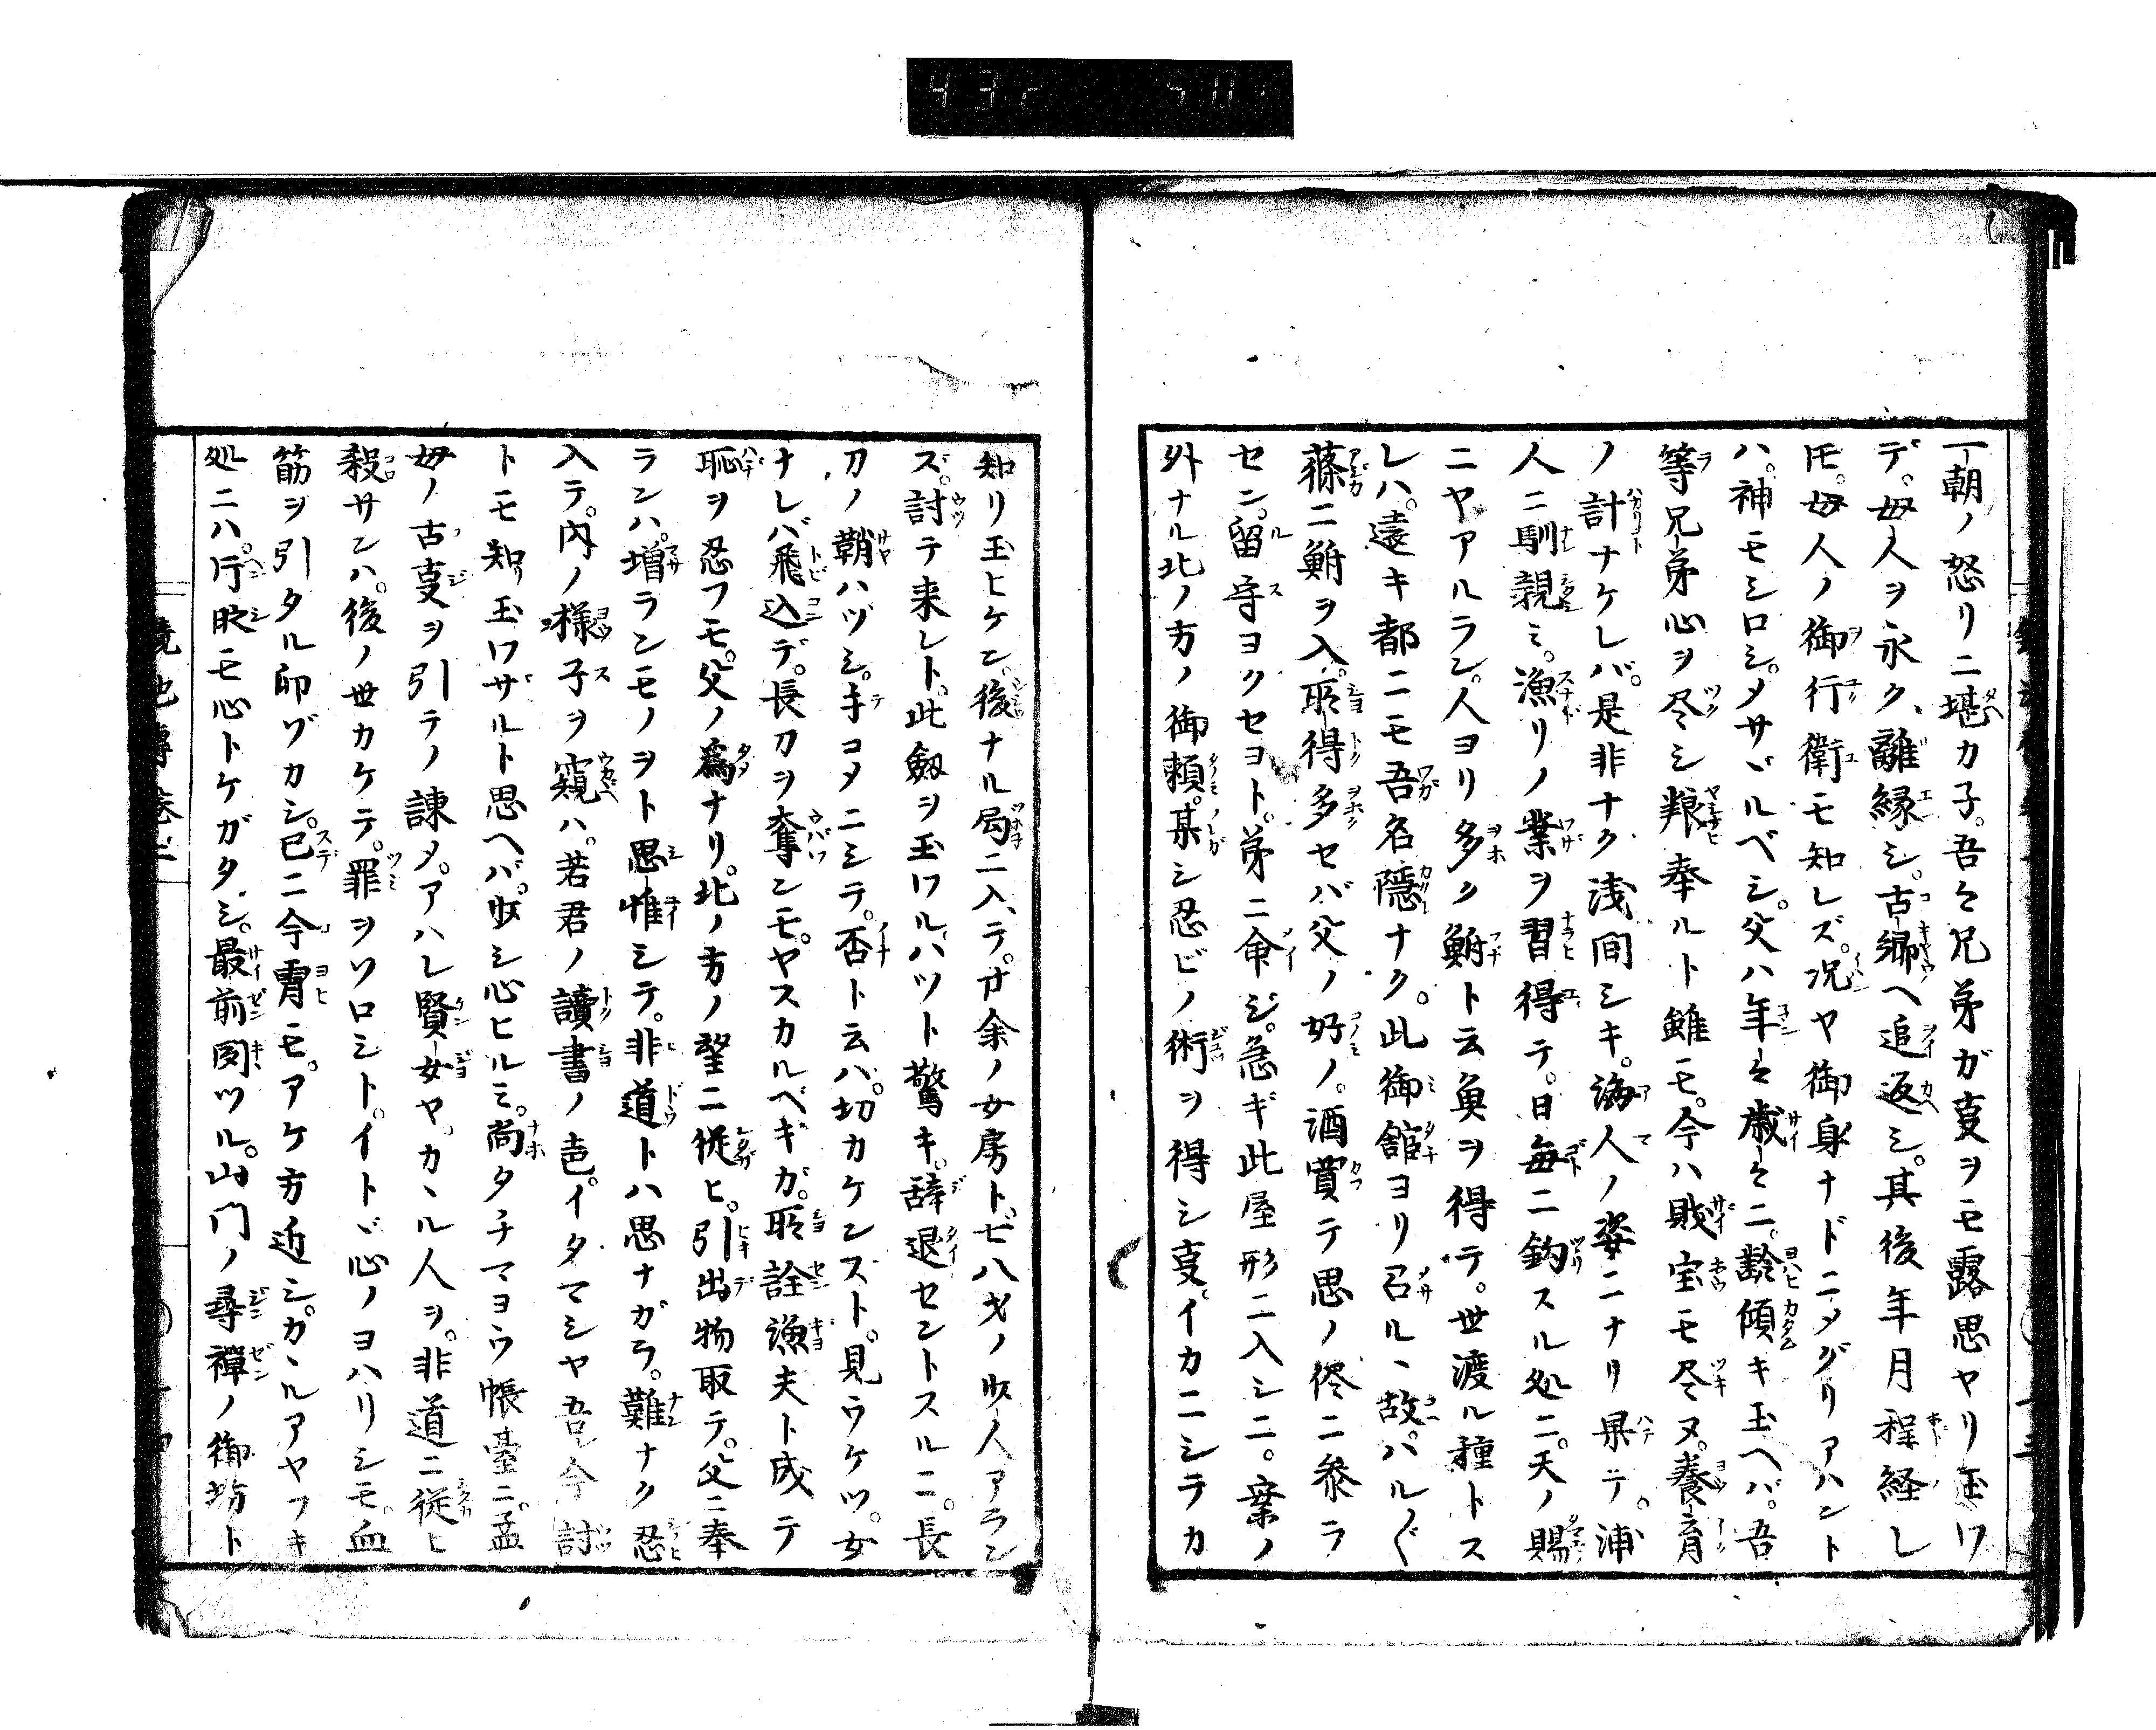 一朝ノ怒リニ堪カ子。吾々兄弟ガ叓ヲモ露思ヤリ玉ワ
デ。母人ヲ永ク離縁シ。古郷ヘ追返シ。其後年月程経レ
𪜈。母人ノ御行衛モ知レズ。况ヤ御身ナドニメグリアハント
ハ。神モシロシメサヾルベシ。父ハ年々歳々ニ。齢傾キ玉ヘバ。吾
等兄弟心ヲ尽シ粮奉ルト雖モ。今ハ賎宝モ尽ヌ。養育
ノ計ナケレバ。是非ナク浅間シキ。海人ノ姿ニナリ果テ。浦
人ニ馴親ミ。漁リノ業ヲ習得テ。日毎ニ釣スル処ニ。天ノ賜
ニヤアルラン。人ヨリ多ク鮒ト云魚ヲ得テ。世渡ル種トス
レハ。遠キ都ニモ吾名隠ナク。此御舘ヨリ召ル丶故。ハル〴〵
篠ニ鮒ヲ入。所得多セバ父ノ好ノ。酒買テ思ノ侭ニ参ラ
セン。留守ヨクセヨト。弟ニ命ジ。急ギ此屋形ニ入シニ。案ノ
外ナル北ノ方ノ御頼。某シ忍ビノ術ヲ得シ叓。イカニシテカ
知リ玉ヒケン。後ナル局ニ入テ。廿余ノ女房ト。七八才ノ少人アラン
ズ。討テ来レト。此劔ヲ玉ワルハツト驚キ。辞退セントスルニ。長
刀ノ鞘ハヅシ。手コメニシテ。否ト云ハ。切カケンスト。見ウケツ。女
ナレバ飛込デ。長刀ヲ奪ンモ。ヤスカルベキガ。所詮漁夫ト成テ
恥ヲ忍フモ。父ノ為ナリ。北ノ方ノ望ニ従ヒ。引出物取テ。父ニ奉
ランハ。増ランモノヲト思惟シテ。非道トハ思ナガラ。難ナク忍
入テ。内ノ様子ヲ窺ハ。若君ノ讀書ノ声。イタマシヤ吾今討
トモ知リ玉ワザルト思ヘバ。少シ心ヒルミ。尚タチマヨウ帳臺ニ。孟
母ノ古叓ヲ引テノ諌メ。アハレ賢女ヤ。カ丶ル人ヲ。非道ニ従ヒ
殺サンハ。後ノ世カケテ。罪ヲソロシト。イトヾ心ノヨハリシモ。血
筋ヲ引タル印ゾカシ。已ニ今宵モ。アケ方近シ。カ丶ルアヤフキ
処ニハ。片時モ心トケガタシ。最前聞ツル。山門ノ尋禅ノ御坊ト